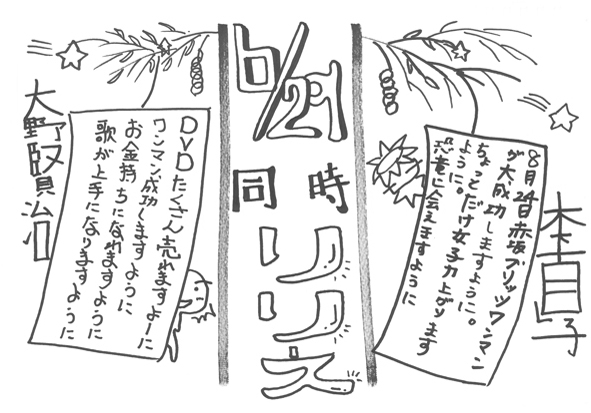 8月24日赤坂ブリッツワンマン
が大成功しますように。
ちょっとだけ女子力上がります
ように。
恐竜に会えますように
6/29
同時
リリえ
DVDたくさん売れますよーに
ワンマン成功しますように
お金持ちになれますように
歌が上手になりますように
大野賢治